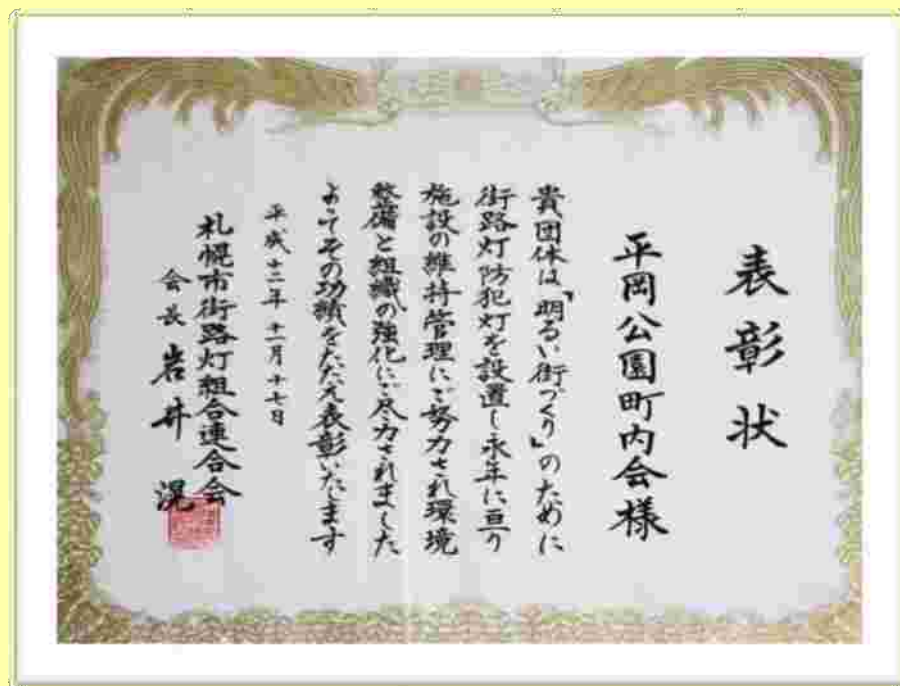 表彰状
平岡公園町内会様
貴団体は「明るい街づくり」のために
街路灯防犯灯を設置し永年に亘り
施設の維持管理にご努力され環境
整備と組織の強化にご尽力されました
よってその功績をたたえ表彰いたします
平成十二年十一月十七日
札幌市街路灯組合連合会
会長 岩井 滉